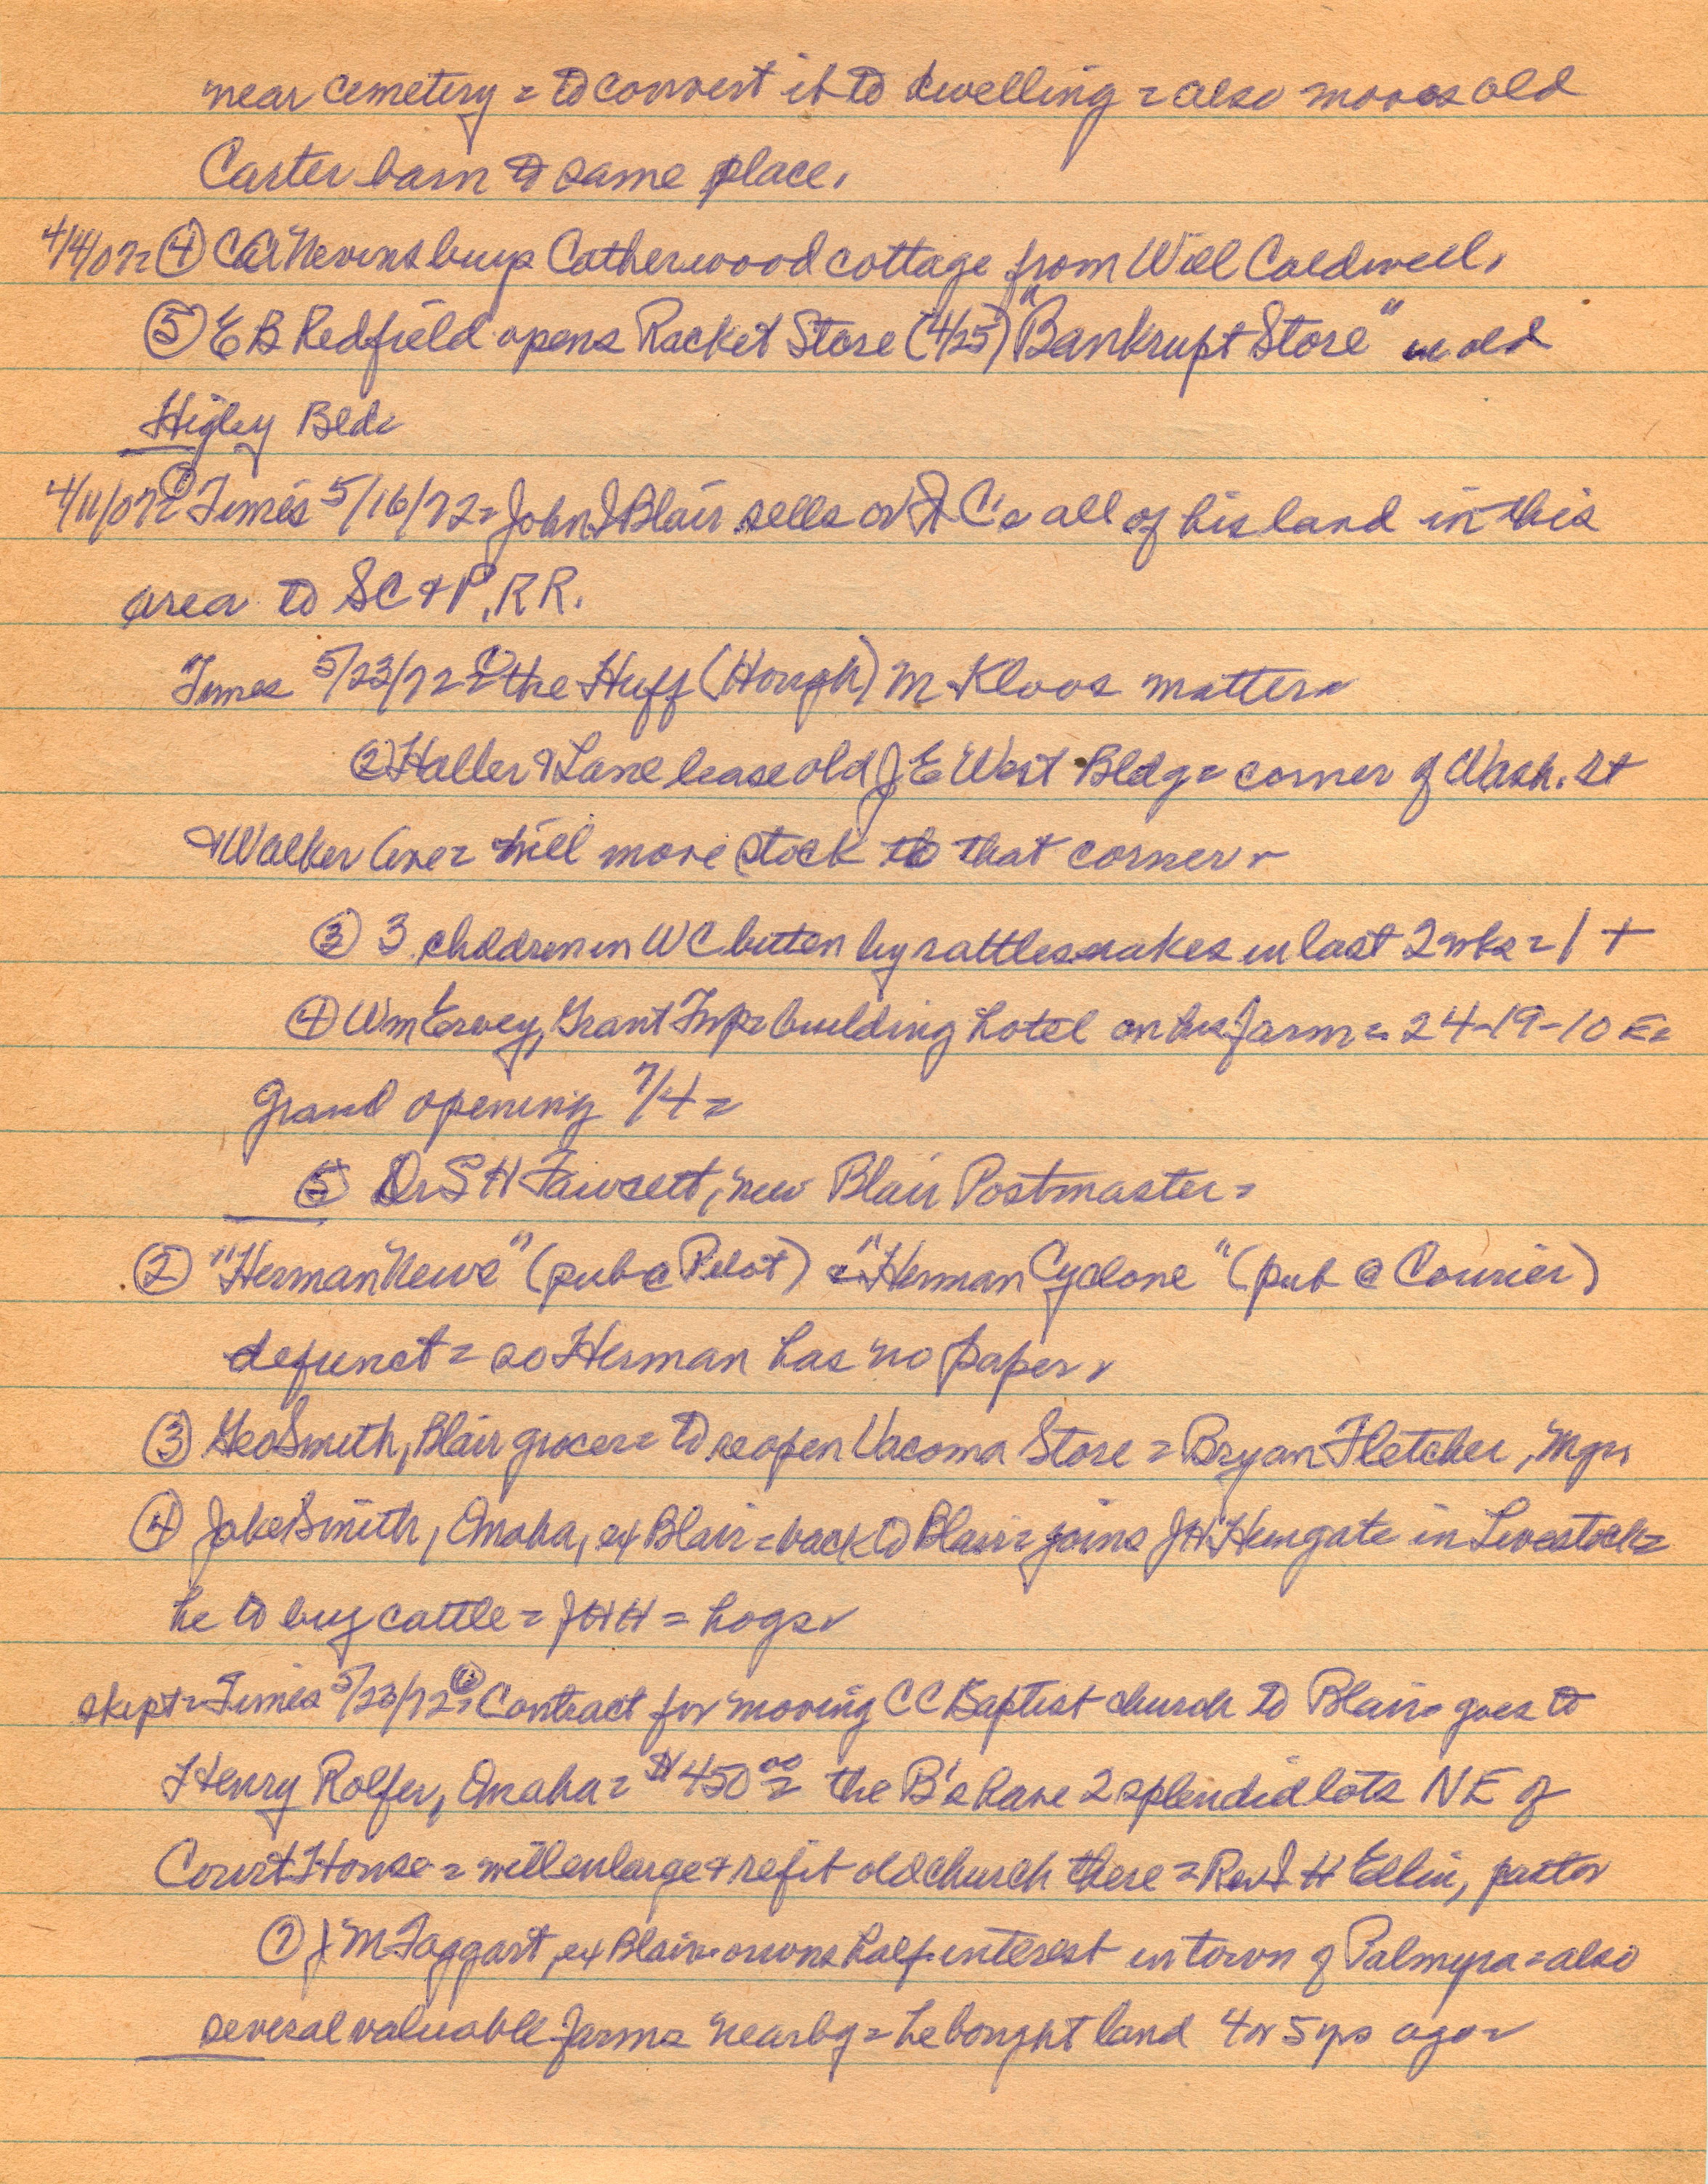 near cemetery = to convert it to dwelling = also moves old
Carter barn to same place.
4/4/07= ④ CC Nevins buys Catherwood cottage from Will Caldwell.
⑤ E B Redfield opens Racket Store (4/25) "Bankrupt Store" in old
Higley Bld.
4/11/07= ① Times 5/16/72= John I Blair sells all of his land in this
area to SC & P. RR.
Times 5/23/72= ① the Huff (Hough) M Kloos matter=
② Haller & Lane lease old J E West Bldg= corner of Wash. St
& Walker Ave= will move stock to that corner=
③ 3 children in WC bitten by rattlesnakes in last 2 wks = 1 +
④ Wm Ervey, Grant Twp= building hotel on his farm= 24-19-10 E=
Grand opening 7/4=
⑤ Dr S H Fawcett, new Blair Postmaster=
② "Herman News" (pub @ Pilot) = "Herman Cyclone" (pub @ Courier)
defunct = so Herman has no paper.
③ Geo Smith, Blair grocer= to reopen Vacoma Store = Bryan Fletcher, Mgr.
④ Jake Smith, Omaha, ex Blair = back to Blair= joins J H Hungate in Livestock=
he to buy cattle = JHH = hogs.
skept= Times 5/23/72= ⑥ Contract for moving CC Baptist church to Blair= goes to
Henry Rolfer, Omaha= $450 00 = the B's have 2 splendid lots NE of
Court House = will enlarge & refit old church there = Rev I H Elkin, pastor
⑦ J M Taggart, ex Blair= owns half interest in town of Palmyra= also
several valuable farms nearby = he bought land 4 or 5 yrs ago=